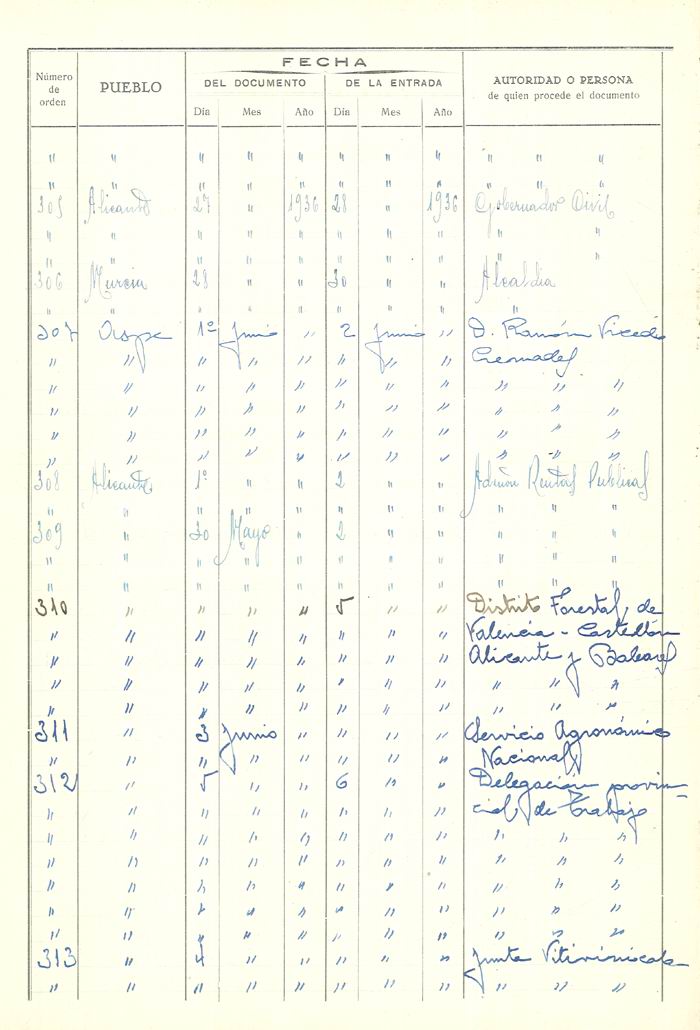 FECHA
Número de orden PUEBLO DEL DOCUMENTO DE LA ENTRADA AUTORIDAD O PERSONA de quien procede el documento
Día Mes Año Día Mes Año
" " " " " " " " " " "
" " " " " " " " " " "
305 Alicante 27 " 1936 28 " 1936 Gobernador Civil
" " " " " " " " " "
" " " " " " " " " "
306 Murcia 28 " " 30 " " Alcaldia
" " " " " " " " "
307 Aspe 1º Junio " 2 Junio " D. Ramón Vicedo
" " " " " " " " Cremades
" " " " " " " " " " "
" " " " " " " " " " "
" " " " " " " " " " "
" " " " " " " " " " "
308 Alicante 1º " " 2 " " Admón Rentas Publicas
" " " " " " " " " " "
309 " 30 Mayo " 2 " " " " "
" " " " " " " " " " "
" " " " " " " " " " "
310 " " " " 5 " " Distrito Forestal, de
" " " " " " " " Valencia - Castellón
" " " " " " " " Alicante y Baleares
" " " " " " " " " " "
" " " " " " " " " " "
311 " 3 Junio " " " " Servicio Agronómico
" " " " " " " " Nacional
312 " 5 " " 6 " " Delegación provin-
" " " " " " " " cial, de Trabajo
" " " " " " " " " " "
" " " " " " " " " " "
" " " " " " " " " " "
" " " " " " " " " " "
" " " " " " " " " " "
313 " 4 " " " " " Junta Vitivinicola
" " " " " " " " " " "